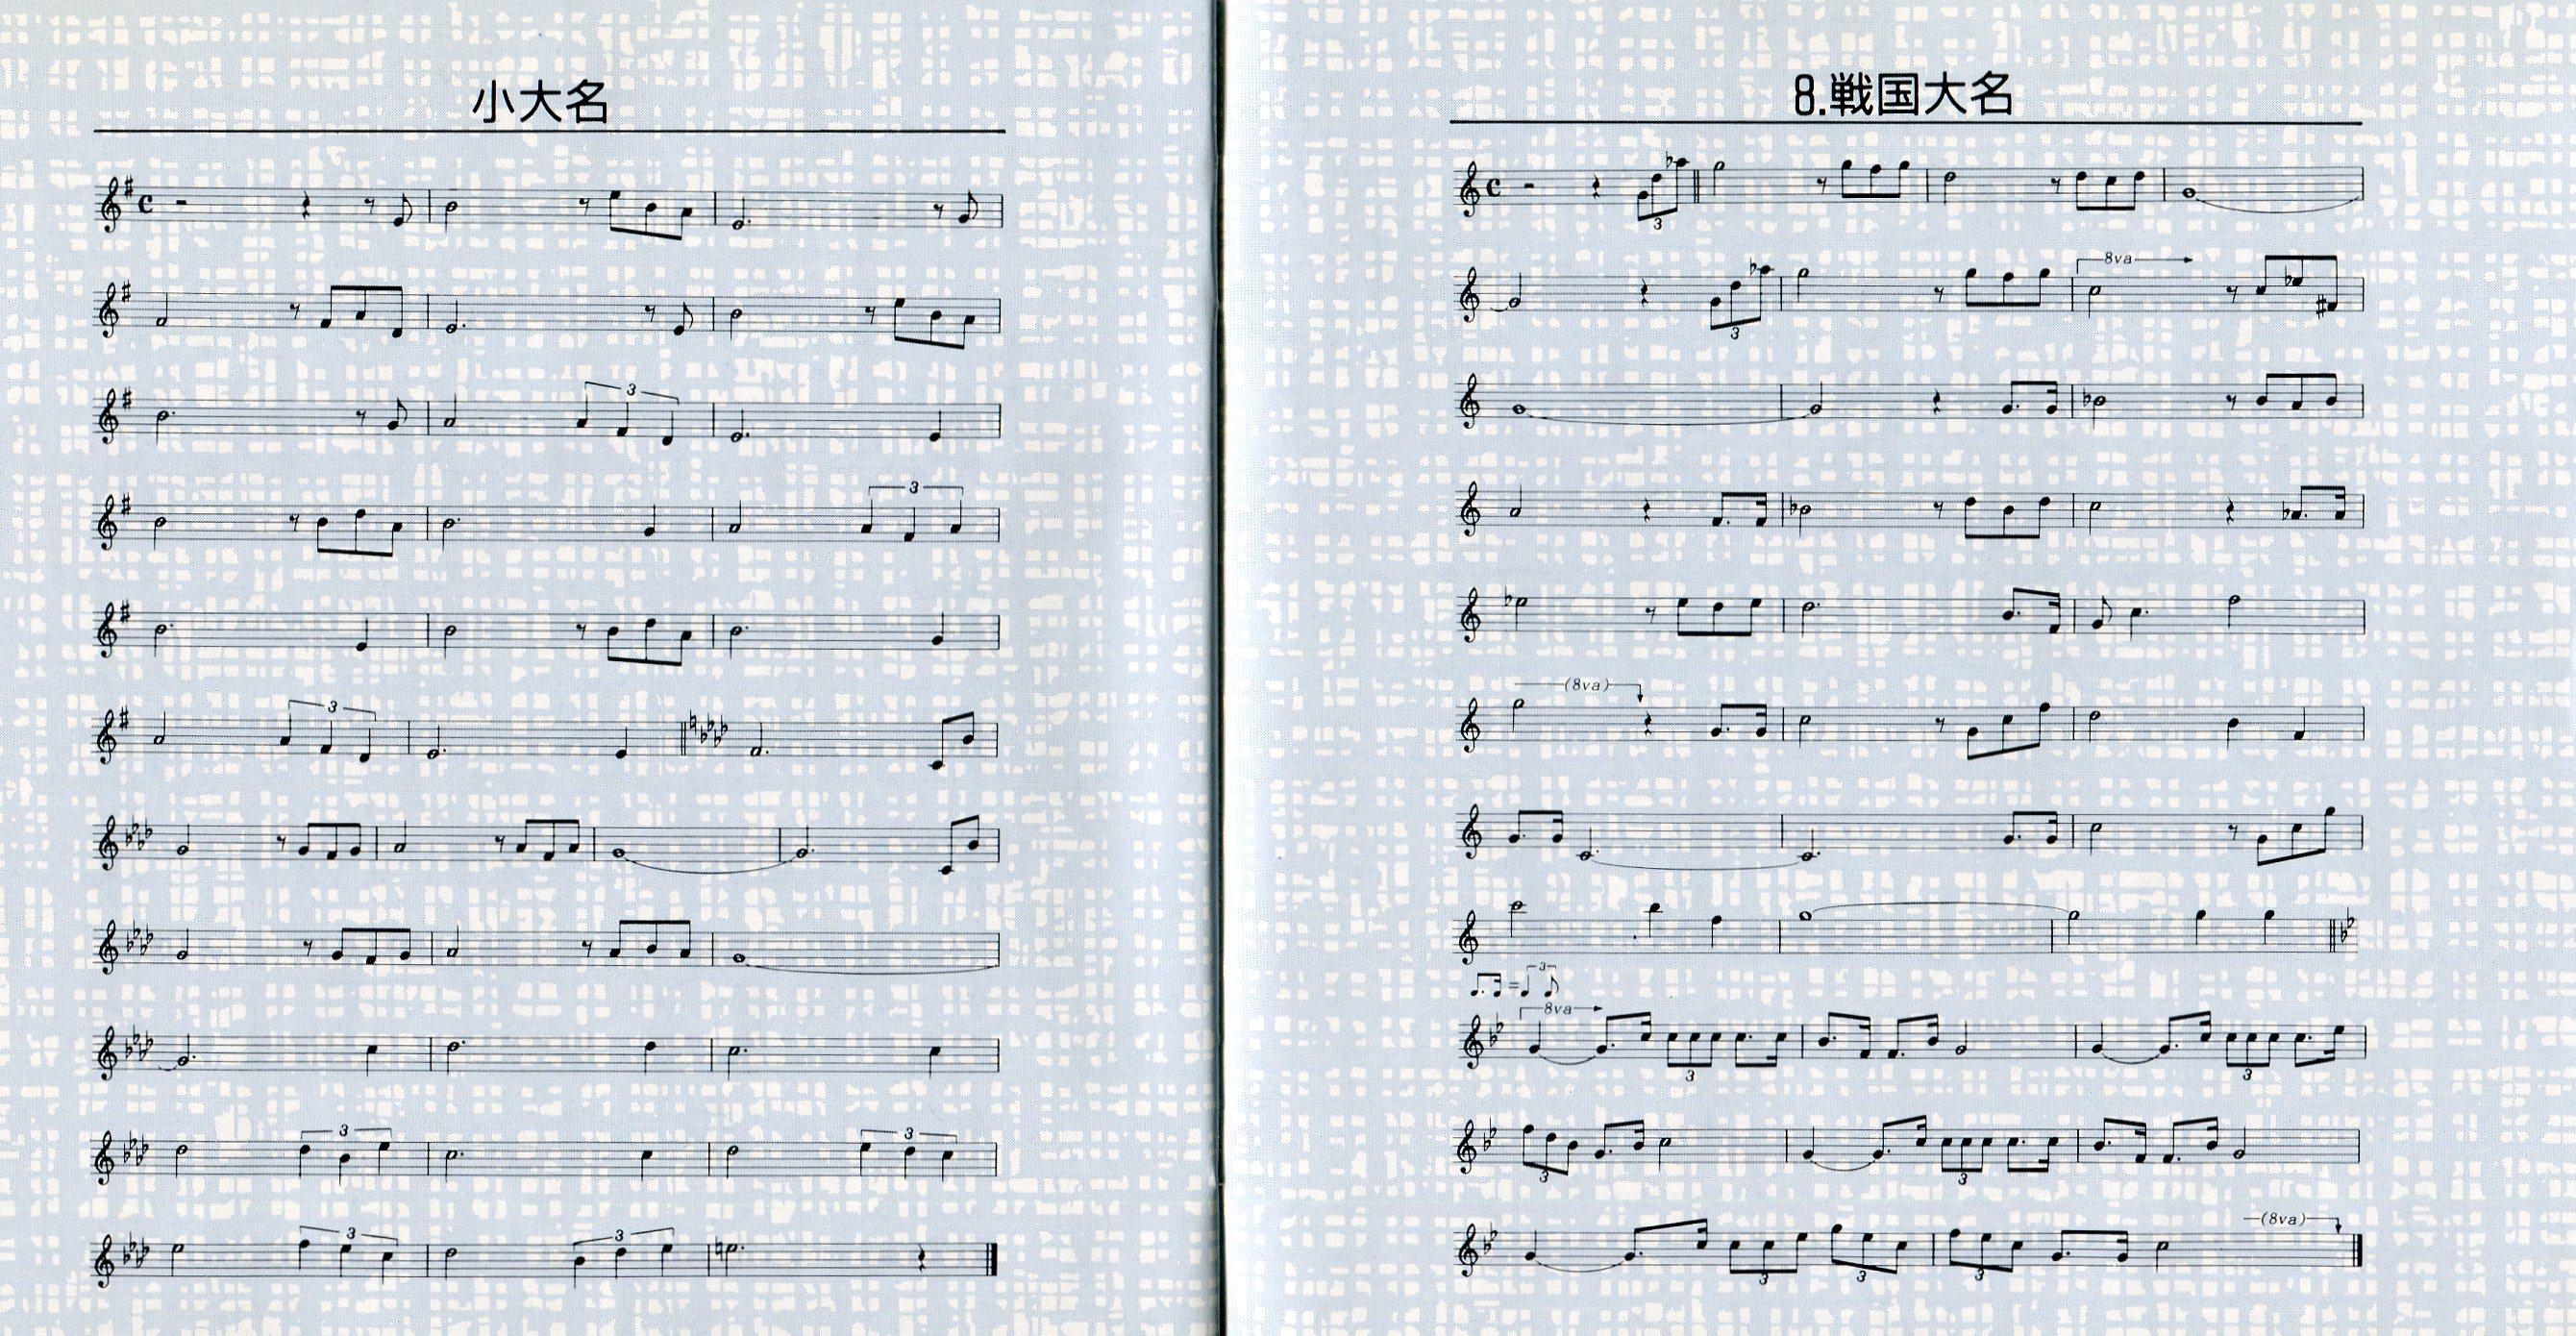 小大名
3
3
3
3
3
3
3
8.戦国大名
3
8va
3
(8va)
3
8va
3
3
3
3
(8va)
3
3
3